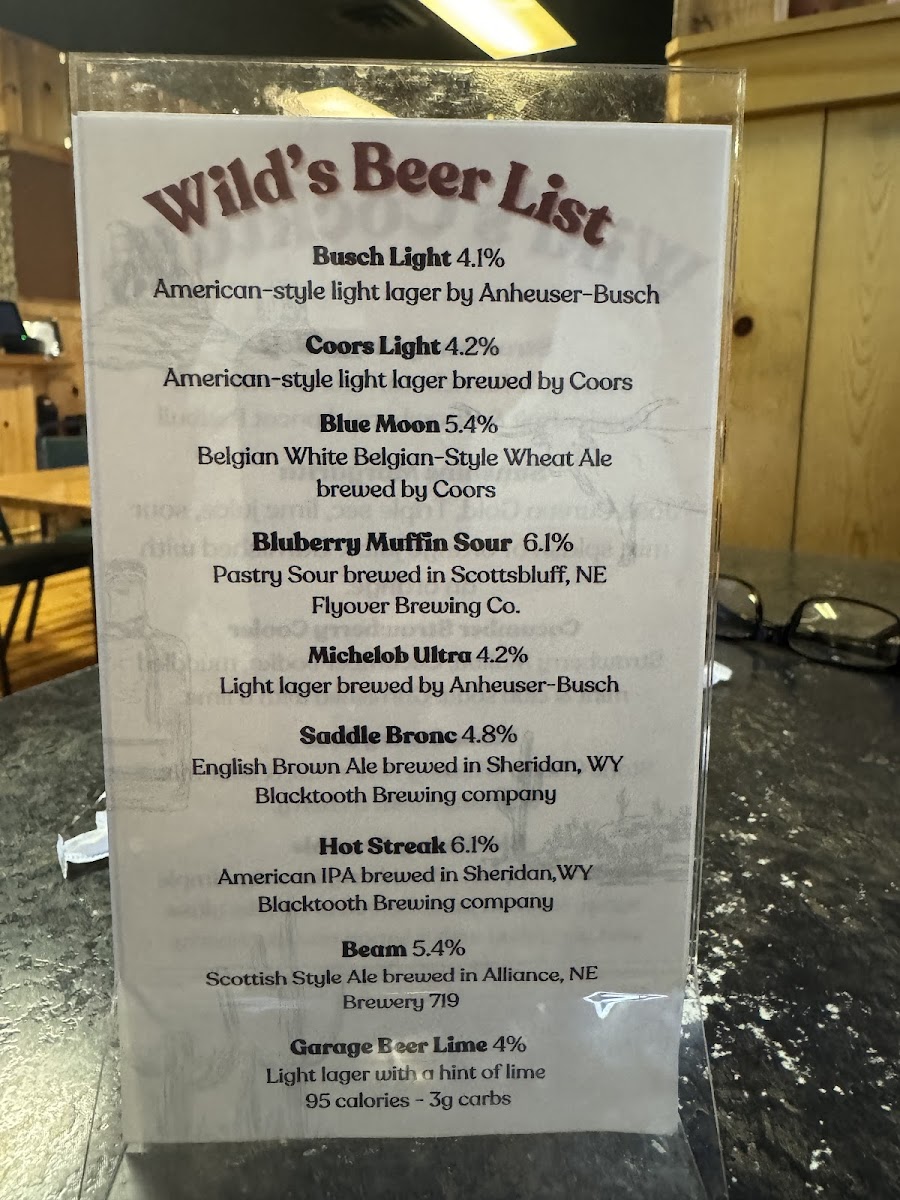 Wild's Beer List
Busch Light 4.1%
American-style light lager by Anheuser-Busch
Coors Light 4.2%
American-style light lager brewed by Coors
Blue Moon 5.4%
Belgian White Belgian-Style Wheat Ale
brewed by Coors
Bluberry Muffin Sour 6.1%
Pastry Sour brewed in Scottsbluff, NE
Flyover Brewing Co.
Michelob Ultra 4.2%
Light lager brewed by Anheuser-Busch
Saddle Bronc 4.8%
English Brown Ale brewed in Sheridan, WY
Blacktooth Brewing company
Hot Streak 6.1%
American IPA brewed in Sheridan,WY
Blacktooth Brewing company
Beam 5.4%
Scottish Style Ale brewed in Alliance, NE
Brewery 719
Garage Beer Lime 4%
Light lager with a hint of lime
95 calories - 3g carbs